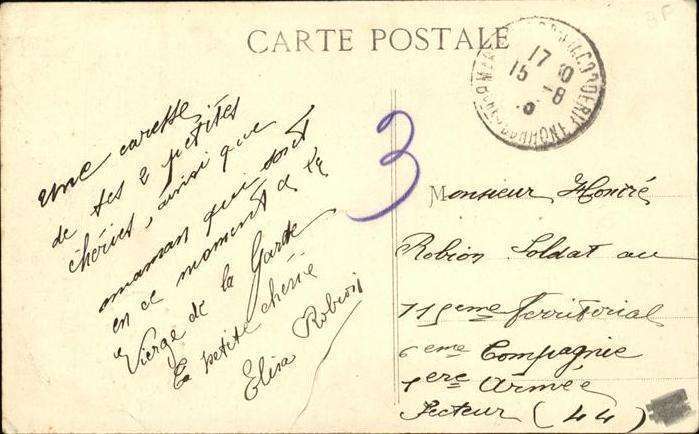 CARTE POSTALE
17 30
15 - 8
3
une caresse
de tes 2 petites
chéries, ainsi que
maman qui doit
en ce moment à la
Vierge de la Garde
ta petite chérie
Elisa Robion
Monsieur Honoré
Robion Soldat au
115eme Territorial
6eme Compagnie
1ere Armée
Secteur (44)